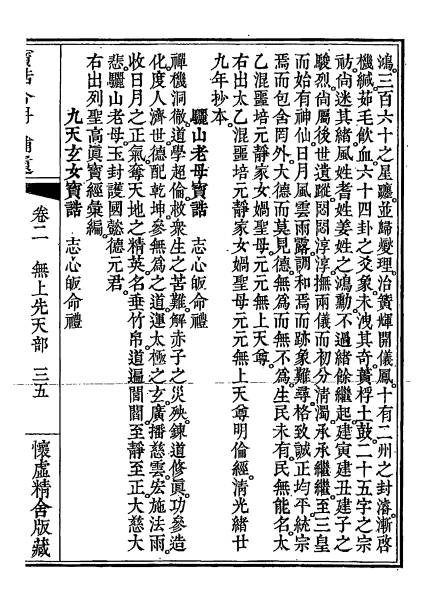 鴻三百六十之星躔並歸變理治簧輝開儀鳳十有二州之封濬漸啓
機緘茹毛飲血六十四卦之爻象未洩其奇蕢桴土鼓二十五字之宗
祊尙迷其緒風姓耆姓姜姓之鴻勳不過緒餘繼起建寅建丑建子之
駿烈尙屬後世遺蹤悶悶淳淳撫兩儀而初分淸濁承承繼繼至三皇
而始有神仙日月風雲雨露調和焉而跡象難尋格致誠正均平統宗
焉而包含罔外大德而莫見德無爲而無不爲生民未有民無能名太
乙混噩培元靜家女媧聖母元元無上天尊
右出太乙混噩培元靜家女媧聖母元元無上天尊明倫經清光緒廿
九年抄本
驪山老母寶誥 志心皈命禮
禪機洞徹道學超倫敉衆生之苦難解赤子之災殃鍊道修眞功參造
化度人濟世德配乾坤參無爲之道運太極之玄廣播慈雲宏施法雨
收日月之正氣奪天地之精英名垂竹帛道遍閻閻至靜至正大慈大
悲驪山老母玉封護國懿德元君
右出列聖高眞寶經彙編
九天玄女寶誥 志心皈命禮
寶誥合冊 補遺
卷二 無上先天部 三五
懷虛精舍版藏